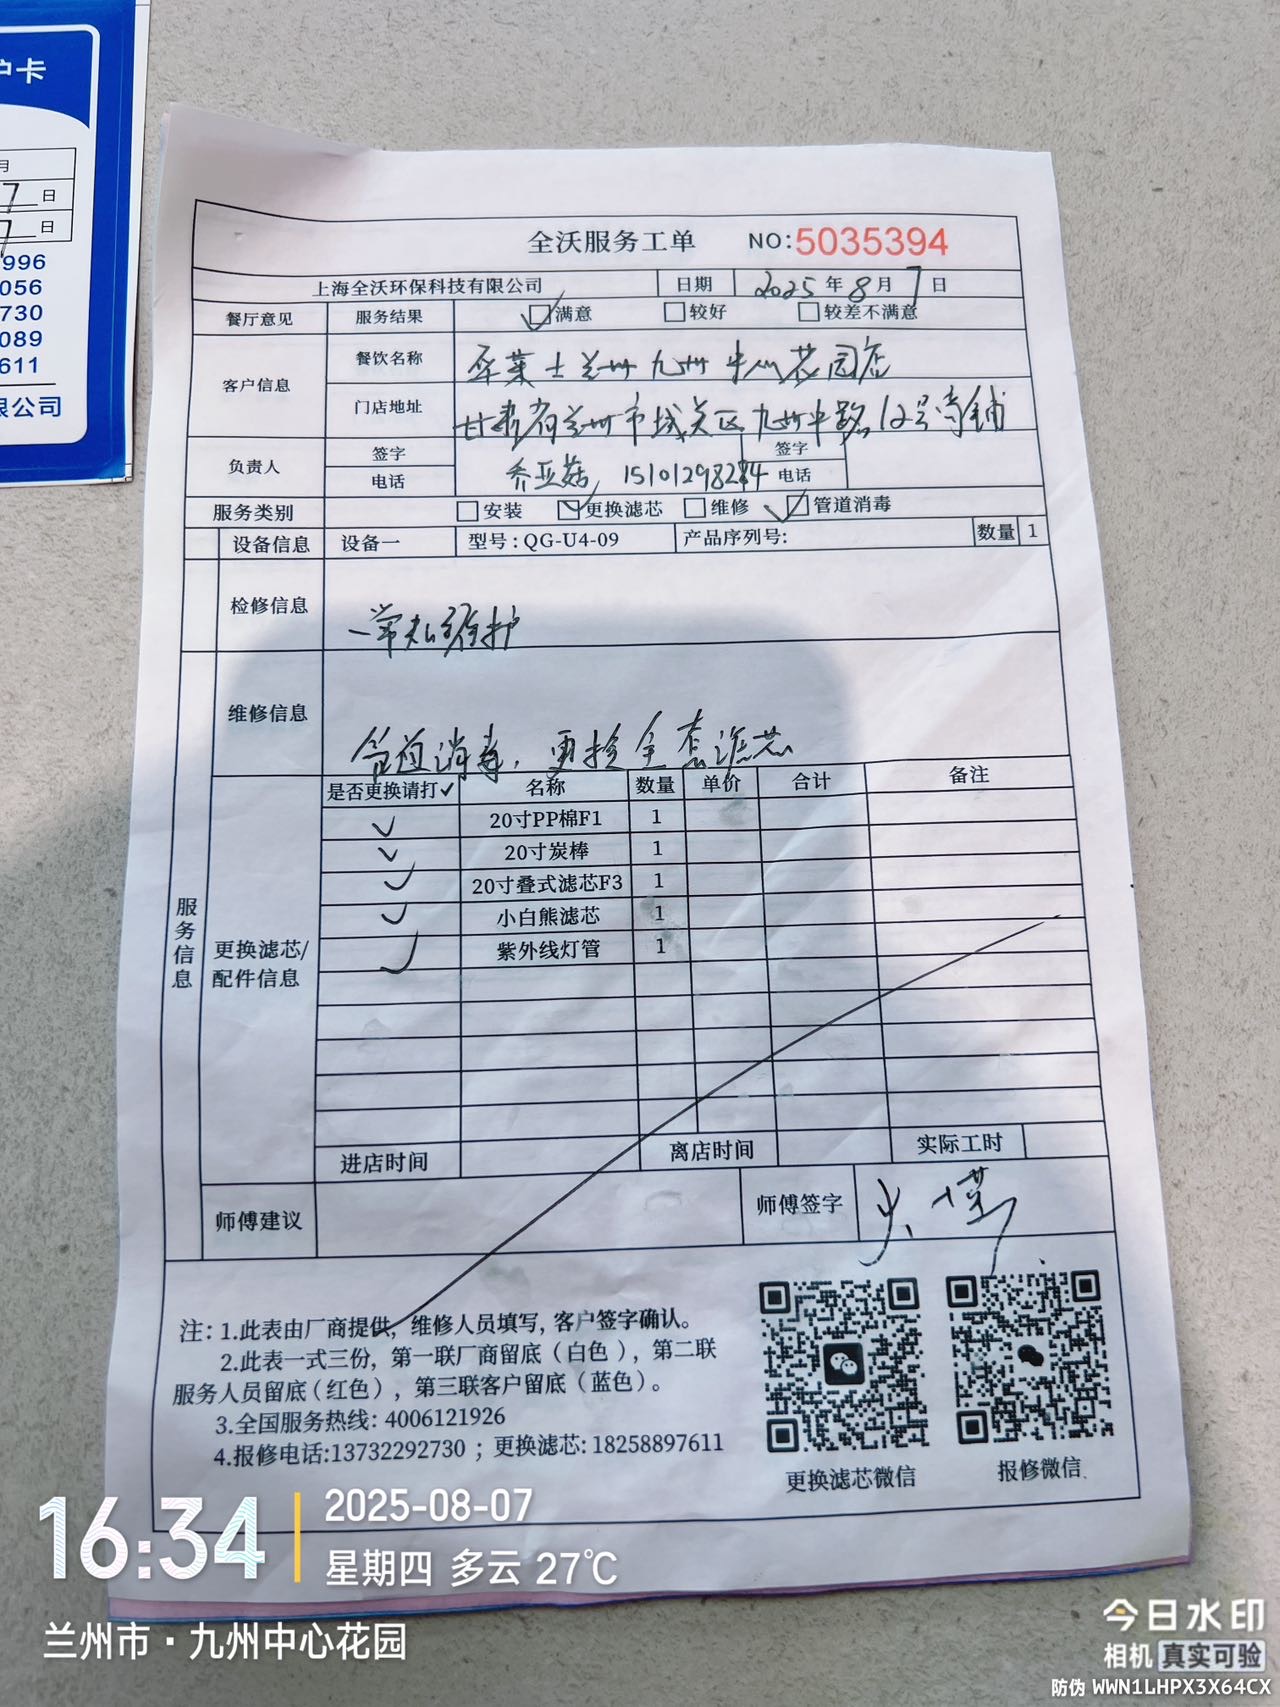 护卡
月
7日
7日
996
056
730
089
611
限公司
全沃服务工单 NO:5035394
上海全沃环保科技有限公司 日期 2025年8月7日
餐厅意见 服务结果 ☑满意 □较好 □较差不满意
客户信息 餐饮名称 华莱士兰州九州中心花园店
门店地址 甘肃省兰州市城关区九州中路12号商铺
负责人 签字 乔亚菇 签字
电话 15101298284 电话
服务类别 □安装 ☑更换滤芯 □维修 ☑管道消毒
设备信息 设备一 型号:QG-U4-09 产品序列号: 数量 1
检修信息 常规维护
维修信息 管道消毒,更换全套滤芯
服务信息
更换滤芯/配件信息
是否更换请打✓ 名称 数量 单价 合计 备注
✓ 20寸PP棉F1 1
✓ 20寸炭棒 1
✓ 20寸叠式滤芯F3 1
✓ 小白熊滤芯 1
✓ 紫外线灯管 1
进店时间 离店时间 实际工时
师傅建议 师傅签字
注:1.此表由厂商提供,维修人员填写,客户签字确认。
2.此表一式三份,第一联厂商留底(白色),第二联
服务人员留底(红色),第三联客户留底(蓝色)。
3.全国服务热线:4006121926
4.报修电话:13732292730;更换滤芯:18258897611
更换滤芯微信 报修微信
16:34 2025-08-07
星期四 多云 27℃
兰州市·九州中心花园
今日水印
相机 真实可验
防伪 WWN1LHPX3X64CX